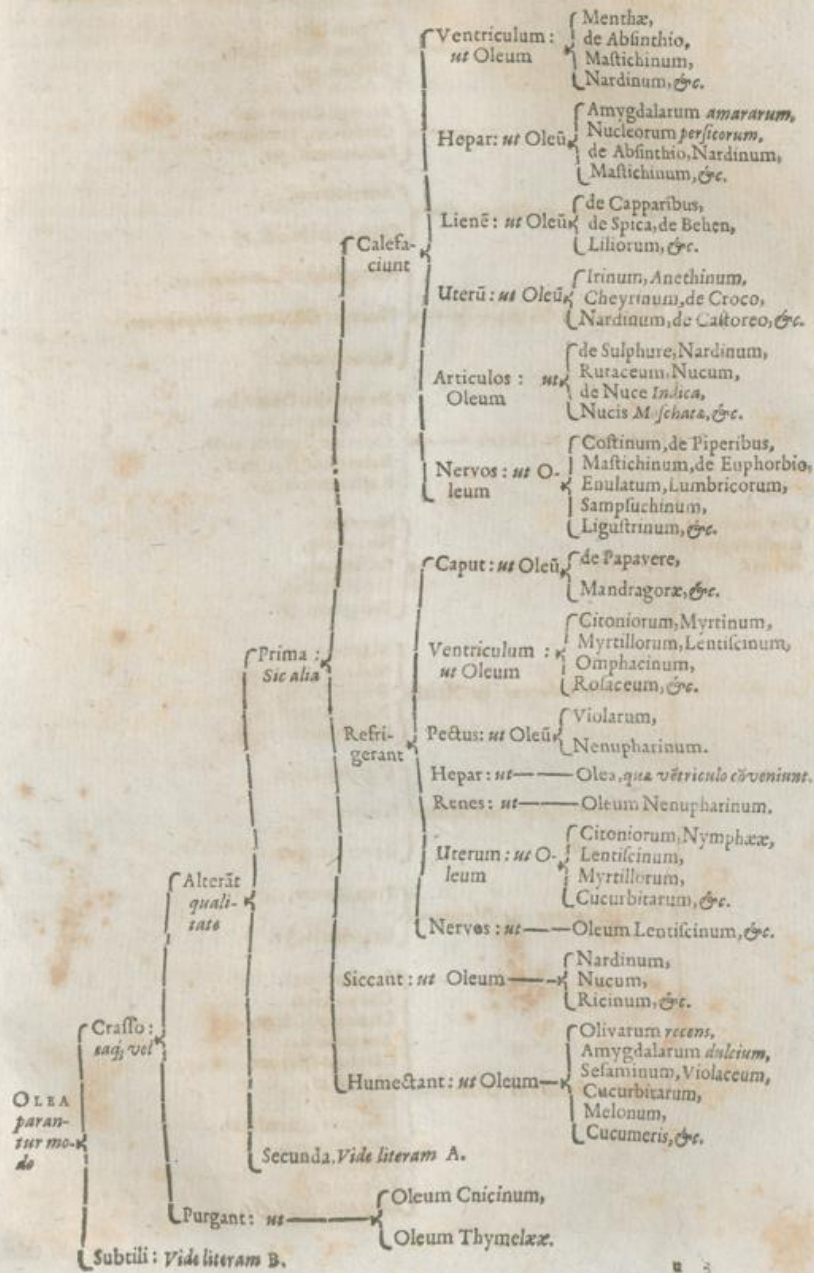 OLEA
paran-
tur mo-
do
Crasso:
eaq; vel
Alterāt
quali-
tate
Prima:
Sic alia
Calefa-
ciunt
Ventriculum:
ut Oleum
Menthæ,
de Absinthio,
Mastichinum,
Nardinum, &c.
Hepar: ut Oleū
Amygdalarum amararum,
Nucleorum persicorum,
de Absinthio, Nardinum,
Mastichinum, &c.
Lienē: ut Oleū
de Capparibus,
de Spica, de Behen,
Liliorum, &c.
Uterū: ut Oleū
Irinum, Anethinum,
Cheyrinum, de Croco,
Nardinum, de Castoreo, &c.
Articulos: ut
Oleum
de Sulphure, Nardinum,
Rutaceum, Nucum,
de Nuce Indica,
Nucis Moschatæ, &c.
Nervos: ut O-
leum
Costinum, de Piperibus,
Mastichinum, de Euphorbio,
Enulatum, Lumbricorum,
Sampsuchinum,
Ligustrinum, &c.
Refri-
gerant
Caput: ut Oleū
de Papavere,
Mandragoræ, &c.
Ventriculum:
ut Oleum
Citoniorum, Myrtinum,
Myrtillorum, Lentiscinum,
Omphacinum,
Rosaceum, &c.
Pectus: ut Oleū
Violarum,
Nenupharinum.
Hepar: ut Olea, quæ vētriculo cōveniunt.
Renes: ut Oleum Nenupharinum.
Uterum: ut O-
leum
Citoniorum, Nymphææ,
Lentiscinum,
Myrtillorum,
Cucurbitarum, &c.
Nervos: ut Oleum Lentiscinum, &c.
Siccant: ut Oleum
Nardinum,
Nucum,
Ricinum, &c.
Humectant: ut Oleum
Olivarum recens,
Amygdalarum dulcium,
Sesaminum, Violaceum,
Cucurbitarum,
Melonum,
Cucumeris, &c.
Secunda. Vide literam A.
Purgant: ut
Oleum Cnicinum,
Oleum Thymelææ.
Subtili: Vide literam B.